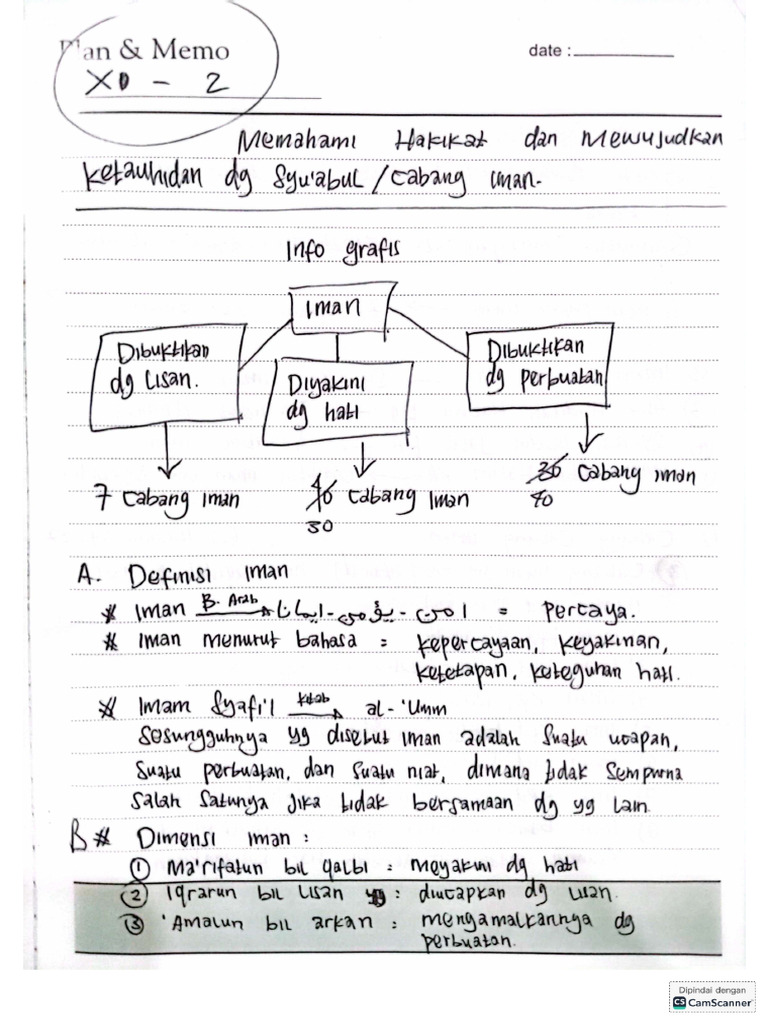 Plan & Memo
date :
XD - 2
Memahami Hakikat dan Mewujudkan
Ketauhidan dg Syu'abul / Cabang iman.
Info grafis
Iman
Dibuktikan
dg Lisan.
Diyakini
dg hati
Dibuktikan
dg perbuatan
7 Cabang iman
40 Cabang Iman
30
30 Cabang iman
40
A. Definisi iman
* Iman B. Arab → امن - يؤمن - ايمانا = Percaya.
* Iman menurut bahasa = kepercayaan, keyakinan,
ketetapan, keteguhan hati.
* Imam Syafi'i kitab → al-'Umm
Sesungguhnya yg disebut iman adalah suatu ucapan,
Suatu perbuatan, dan suatu niat, dimana tidak sempurna
salah satunya jika tidak bersamaan dg yg lain.
B * Dimensi iman :
① Ma'rifatun bil qalbi = meyakini dg hati
② Iqrarun bil Lisan : diucapkan dg lisan.
③ 'Amalun bil arkan = mengamalkannya dg
perbuatan.
Dipindai dengan
CS CamScanner